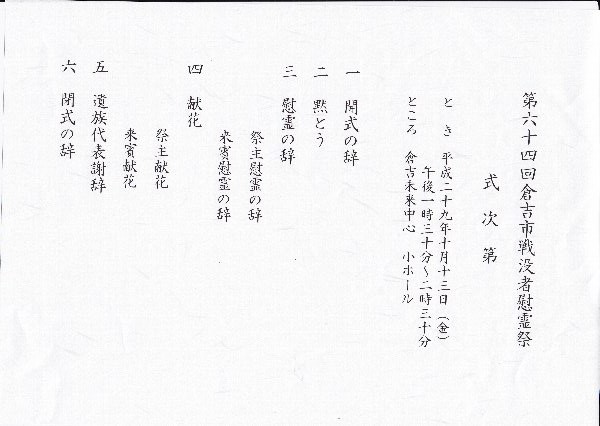 第六十四回倉吉市戦没者慰霊祭
式次第
とき 平成二十九年十月十三日（金）
午後一時三十分～二時三十分
ところ 倉吉未来中心 小ホール
一 開式の辞
二 黙とう
三 慰霊の辞
祭主慰霊の辞
来賓慰霊の辞
四 献花
祭主献花
来賓献花
五 遺族代表謝辞
六 閉式の辞